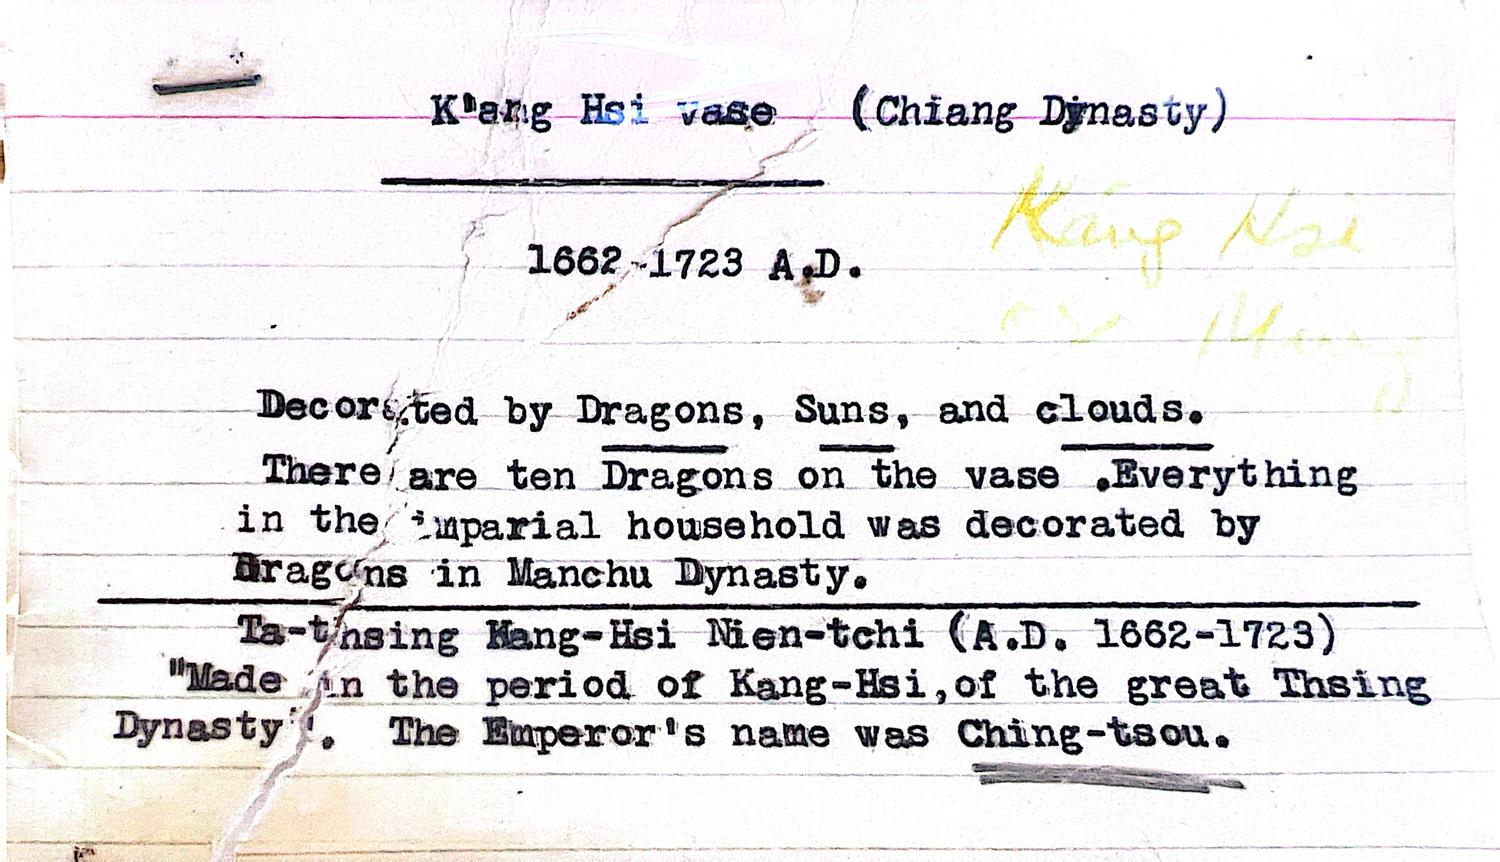 K'ang Hsi vase (Chiang Dynasty)
Kang Hsi
1662-1723 A.D.
Decorated by Dragons, Suns, and clouds.
There are ten Dragons on the vase .Everything
in the imparial household was decorated by
Dragons in Manchu Dynasty.
Ta-thsing Kang-Hsi Nien-tchi (A.D. 1662-1723)
"Made in the period of Kang-Hsi,of the great Thsing
Dynasty". The Emperor's name was Ching-tsou.